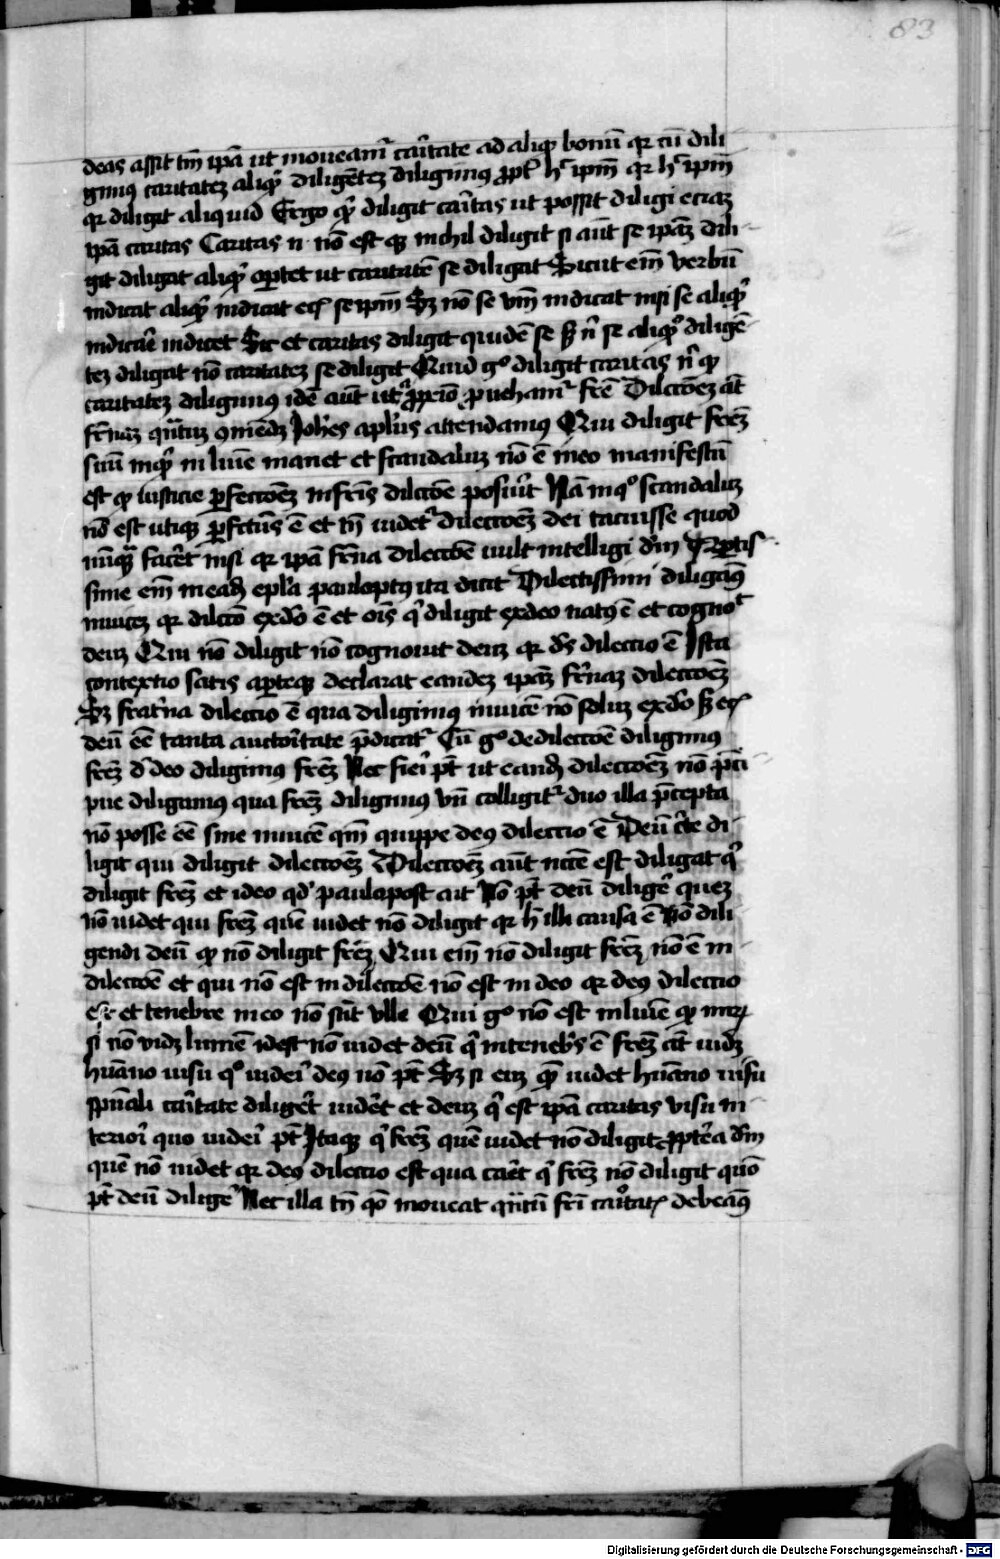 83
deas assit tm̄ ipā ut moueamr̄ caītate ad aliqͥ bonū qr cū dili
gimus caritateȝ aliqͥ diligēteȝ diligimꝰ ꝓpt̓ hͦ ipm̄ qr hͦ ipm̄
qr diligit aliquid Ergo qͥ diligit caītas ut possit diligi eciaȝ
ipā caritas Caritas n̄ nō est qꝫ nichil diligit si aūt se ipāȝ dili
git diligat aliqͥ oꝑtet ut caritatē se diligat Sicut em̄ verbū
indicat aliqͥ indicat ecꝭ se ipm̄ Sȝ nō se vm̄ indicat nisi se aliqͥ
indicar̄e indicet Sic et caritas diligit quidē se sȝ nͥ se aliqͦ diligē
teȝ diligat nō caritateȝ se diligit Quid gͦ diligit caritas nͥ qꝫ
caritateȝ diligimꝰ idē aūt utͥ ꝓxīo ꝓuehamr̄ fr̄ē Dilcōeȝ aūt
fr̄naȝ qͣntuȝ ꝯmēdȝ Joh̄es apl̄us attendamꝰ Qui diligit fr̄eȝ
suū inqͥ in luīe manet et scandaluȝ nō ē in eo manifestū
est qꝫ iusticie ꝑfectōeȝ in fr̄is dilcōe posuīt Nā in qͦ scandaluȝ
nō est utiqꝫ ꝑfctūs ē et tn̄ uidet̓ dilectōeȝ dei tacuisse quod
nūqͣ facēt nisi qr ipā fr̄na dilectōe uult intelligi dm̄ Aꝑtis
sime em̄ in eadꝫ epl̄a paulo ptꝰ ita dicit Dilectissimi diligāꝰ
inuiceȝ qr dilcō ex dō ē et oīs qͥ diligit ex deo natꝰ ē et cognoͭ
deuȝ Qui nō diligit nō cognouit deuȝ qr dꝰ dilectio ē Ista
contextio satis aꝑteqꝫ declarat eandeȝ ipāȝ fr̄naȝ dilectōeȝ
Sȝ frat̓na dilectio ē qua diligimꝰ inuicē nō soluȝ ex dō sȝ ecꝭ
deū eē tanta auctoītate p̄dicat̓ Cū gͦ de dilectōe diligimꝰ
fr̄eȝ d̓ deo diligimꝰ fr̄eȝ Nec fieī pt̄ ut eandꝫ dilectōeȝ nō p̄ci
pue diligamꝰ qua fr̄eȝ diligimꝰ vn̄ colligit̓ duo illa p̄cepta
nō posse eē sine inuicē qm̄ quippe deꝰ dilectio ē Deū c̄te di
ligit qui diligit dilectōeȝ Dilectōeȝ aūt nc̄e est diligat qͥ
diligit fr̄eȝ et ideo qd̓ paulo post ait Nō pt̄ deū diligē queȝ
nō uidet qui fr̄eȝ quē uidet nō diligit qr h̄ illi causa ē nō dili
gendi deū qꝫ nō diligit fr̄eȝ Qui em̄ nō diligit fr̄eȝ nō ē in
dilectōe et qui nō est in dilectōe nō est in deo qr deꝰ dilectio
est et tenebre in eo nō sūt ulle Qui gͦ nō est in luīe qꝫ mirꝫ
si nō vidȝ lumē idest nō uidet deū qͥ in tenebͥs ē fr̄eȝ aūt uidȝ
hūano uisu qͦ uideī deꝰ nō pt̄ Sȝ si euȝ quē uidet hūano uisu
spūali caītate diligēt uidēt et deuȝ qͥ est ipā caritas visu in
terioī quo uideī pt̄ Itaqꝫ qͥ fr̄eȝ quē uidet nō diligit ꝓpt̓ea dm̄
quē nō uidet qr deꝰ dilectio est qua caēt qͥ fr̄eȝ nō diligit quō
pt̄ deū diligē Nec illa tn̄ qō moueat qͣntū fr̄i caītatꝭ debeāꝰ
Digitalisierung gefördert durch die Deutsche Forschungsgemeinschaft - DFG